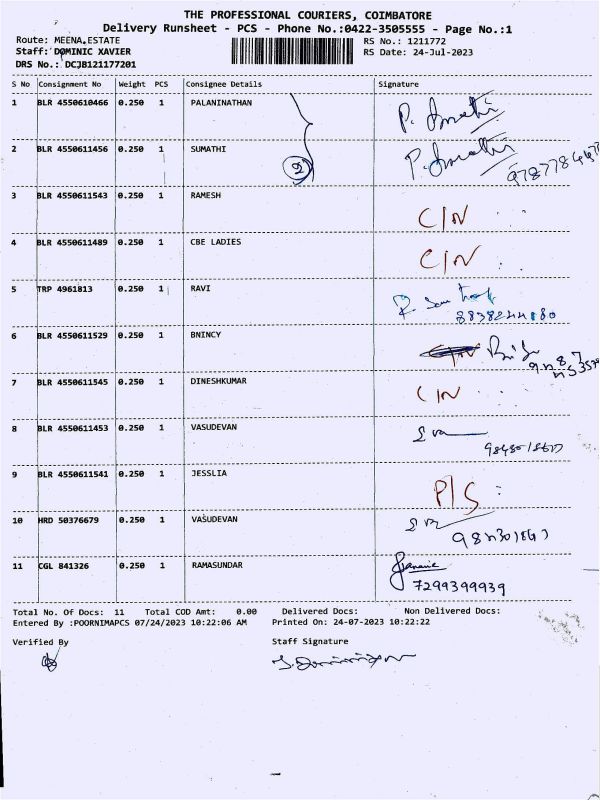 THE PROFESSIONAL COURIERS, COIMBATORE
Delivery Runsheet - PCS - Phone No.:0422-3505555 - Page No.:1
Route: MEENA,ESTATE RS No.: 1211772
Staff: DOMINIC XAVIER RS Date: 24-Jul-2023
DRS No.: DCJB121177201
S No Consignment No Weight PCS Consignee Details Signature
1 BLR 4550610466 0.250 1 PALANINATHAN
2 BLR 4550611456 0.250 1 SUMATHI
2
3 BLR 4550611543 0.250 1 RAMESH C/N
4 BLR 4550611489 0.250 1 CBE LADIES C/N
5 TRP 4961813 0.250 1 RAVI
6 BLR 4550611529 0.250 1 BNINCY
7 BLR 4550611545 0.250 1 DINESHKUMAR C/N
8 BLR 4550611453 0.250 1 VASUDEVAN
9 BLR 4550611541 0.250 1 JESSLIA P/S
10 HRD 50376679 0.250 1 VASUDEVAN
11 CGL 841326 0.250 1 RAMASUNDAR
7299399939
Total No. Of Docs: 11 Total COD Amt: 0.00 Delivered Docs: Non Delivered Docs:
Entered By :POORNIMAPCS 07/24/2023 10:22:06 AM Printed On: 24-07-2023 10:22:22
Verified By Staff Signature